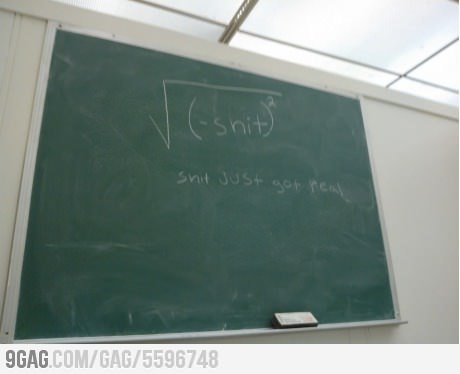 √(-shit)²
shit just got real
9GAG.COM/GAG/5596748